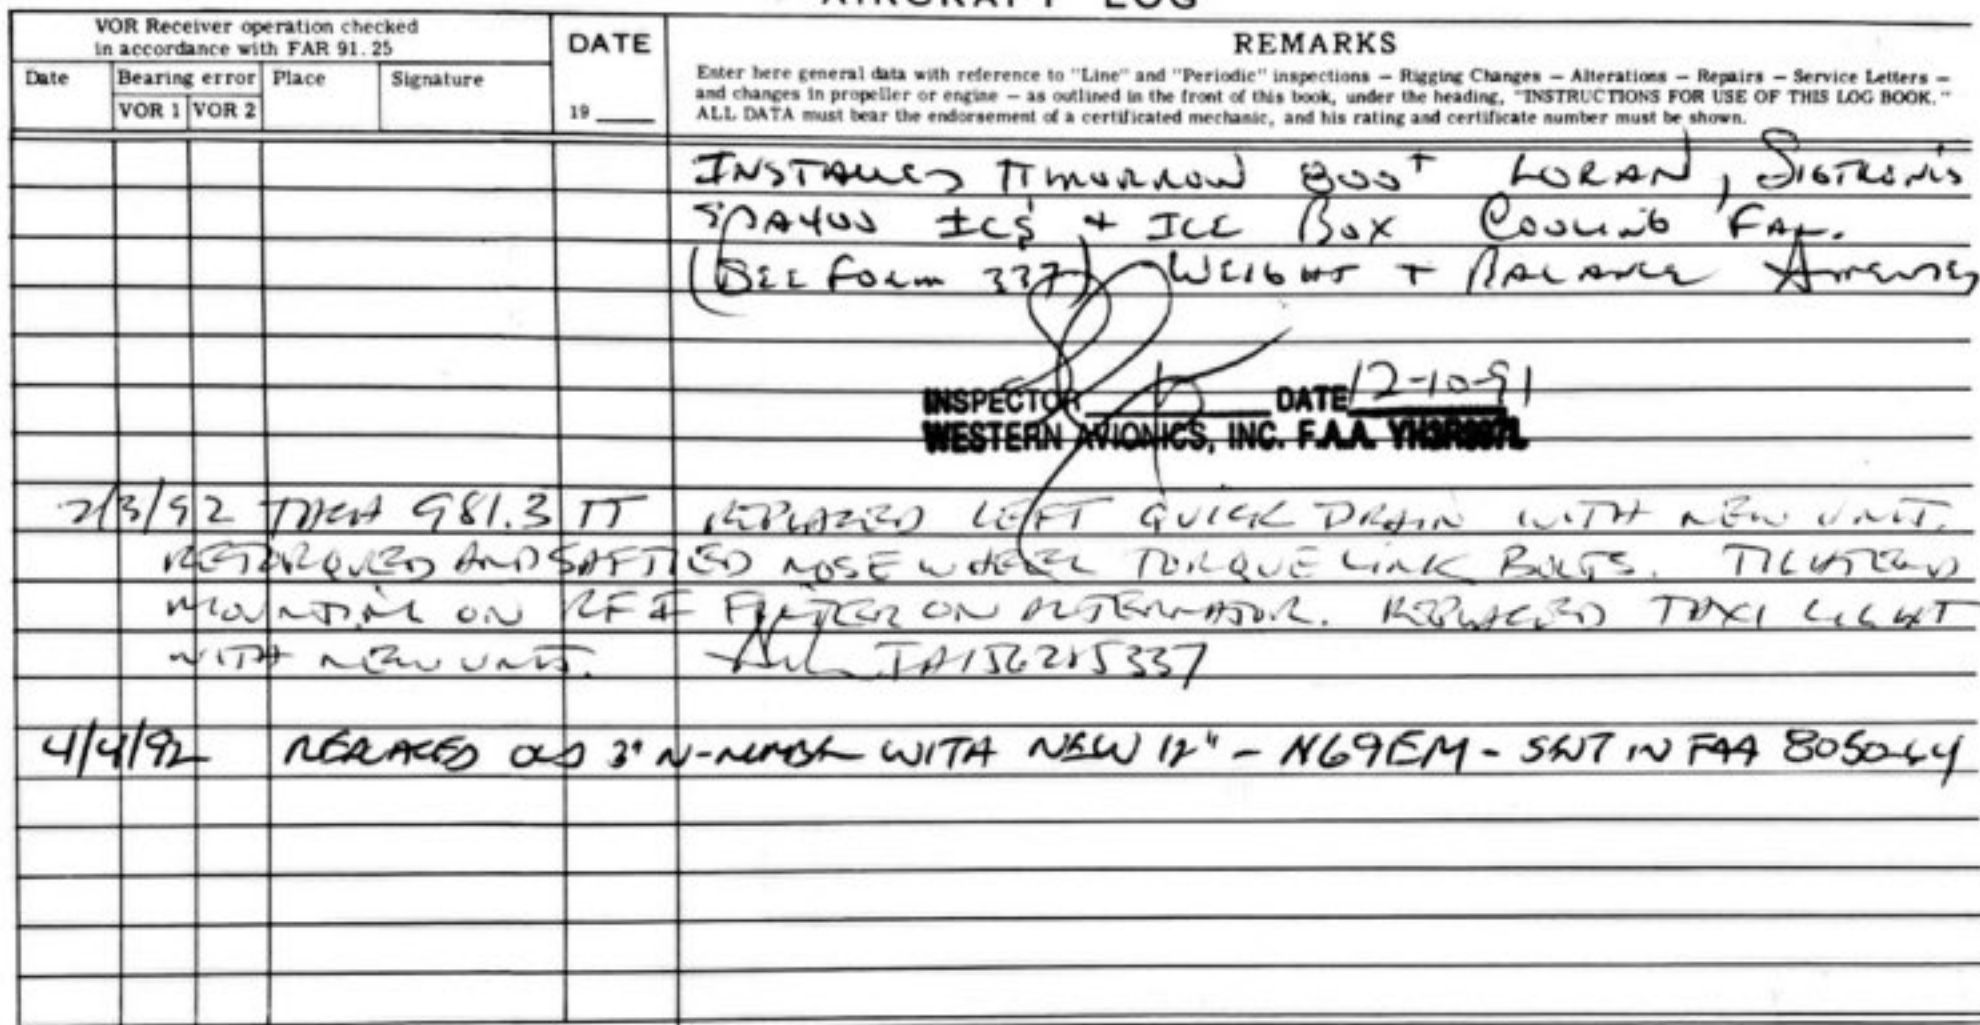 AIRCRAFT LOG
VOR Receiver operation checked
in accordance with FAR 91.25
DATE
REMARKS
Date
Bearing error
Place
Signature
VOR 1
VOR 2
19
Enter here general data with reference to "Line" and "Periodic" inspections — Rigging Changes — Alterations — Repairs — Service Letters —
and changes in propeller or engine — as outlined in the front of this book, under the heading, "INSTRUCTIONS FOR USE OF THIS LOG BOOK."
ALL DATA must bear the endorsement of a certificated mechanic, and his rating and certificate number must be shown.
INSTALLED IIMORROW 800+ LORAN, SIGTRONIS
SPA400 ICS + ICE BOX COOLING FAN.
(SEE FORM 337) WEIGHT + BALANCE AMENDED
INSPECTOR DATE 12-10-91
WESTERN AVIONICS, INC. F.A.A.
2/3/92 TACH 981.3 TT REPLACED LEFT QUICK DRAIN WITH NEW UNIT.
RETORQUED AND SAFTIED NOSE WHEEL TORQUE LINK BOLTS. TIGHTENED
MOUNTING ON RFI FILTER ON ALTERNATOR. REPLACED TAXI LIGHT
WITH NEW UNIT. IA156215337
4/4/92 REPLACED OLD 3" N-NUMBER WITH NEW 12" - N69EM - SENT IN FAA 8050-64